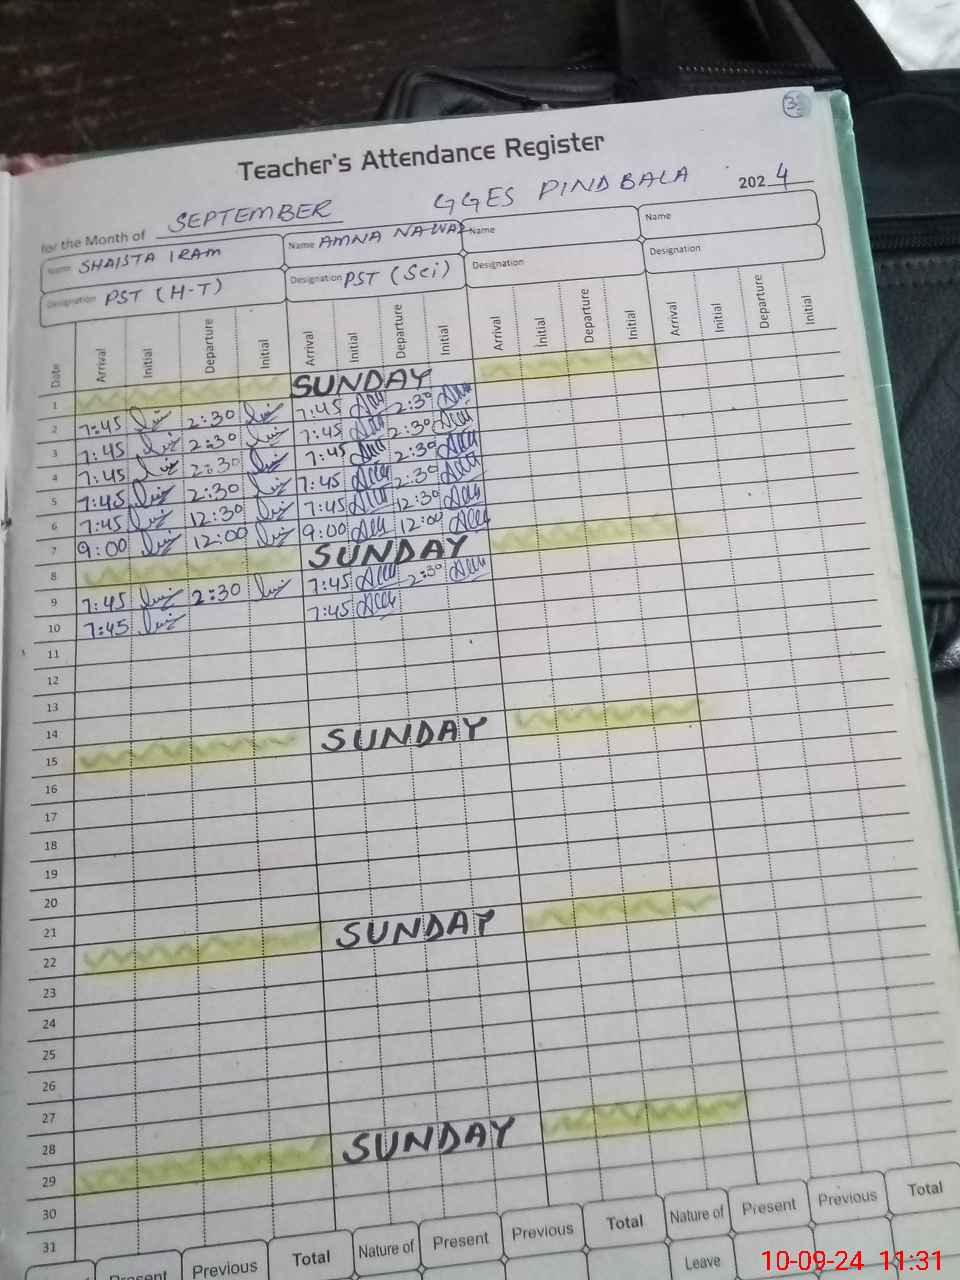 3
Teacher's Attendance Register
for the Month of SEPTEMBER GGES PINDBALA 2024
Name SHAISTA IRAM Name AMNA NAWAZ Name Name
Designation PST (H-T) Designation PST (Sci) Designation Designation
Date Arrival Initial Departure Initial Arrival Initial Departure Initial Arrival Initial Departure Initial Arrival Initial Departure Initial
1 SUNDAY
2 7:45 2:30 7:45 2:30
3 7:45 2:30 7:45 2:30
4 7:45 2:30 7:45 2:30
5 7:45 2:30 7:45 2:30
6 7:45 12:30 7:45 12:30
7 9:00 12:00 9:00 12:00
8 SUNDAY
9 7:45 2:30 7:45 2:30
10 7:45 7:45
11
12
13
14
15 SUNDAY
16
17
18
19
20
21
22 SUNDAY
23
24
25
26
27
28
29 SUNDAY
30
31
Present Previous Total Nature of Present Previous Total Nature of Present Previous Total
Leave
10-09-24 11:31